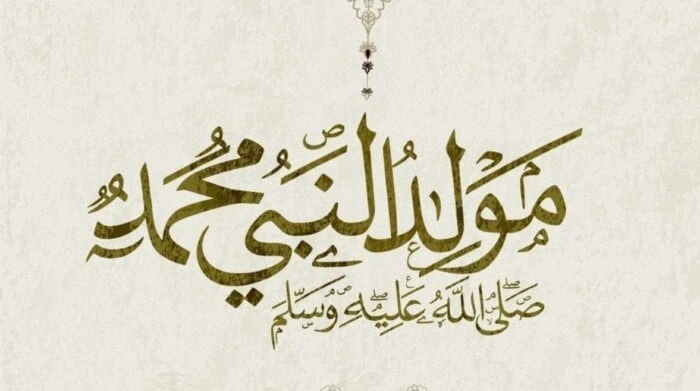 مَولِدُ النَّبِي مُحَمَّدٍ
صَلَّى اللَّهُ عَلَيْهِ وَسَلَّمَ